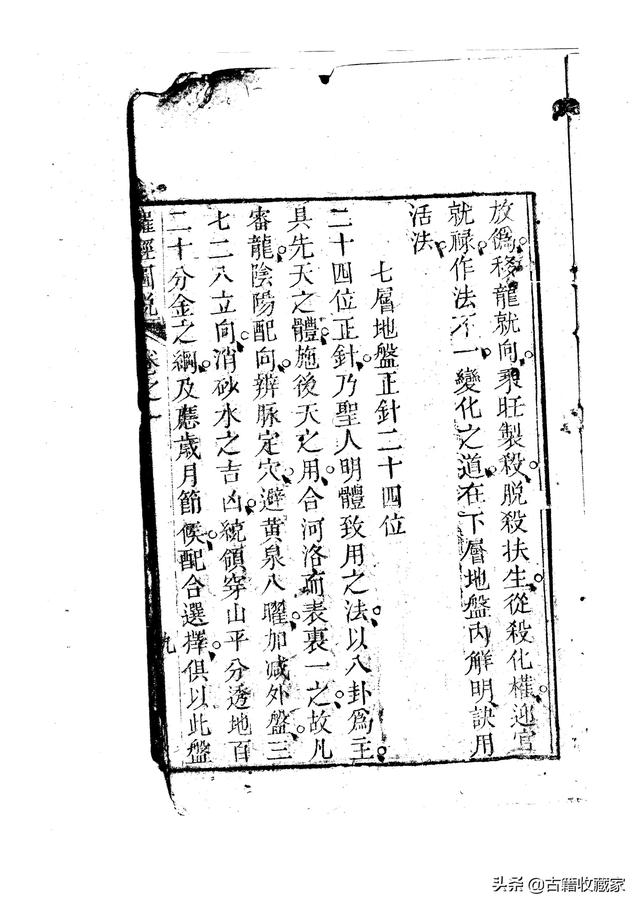 放為移龍就向乘旺製殺脫殺扶生從殺化權迎官
就祿作法不一變化之道在下層地盤內解明訣用
活法
七層地盤正針二十四位
二十四位正針乃聖人明體致用之法以八卦為主
具先天之體施後天之用合河洛而表裏一之故凡
審龍陰陽配向辨脉定穴避黃泉八曜加减外盤三
七二八立向消砂水之吉凶統領穿山平分透地百
二十分金之綱及應歲月節候配合選擇俱以此盤
羅經圖說 卷之一
九
头条@古籍收藏家